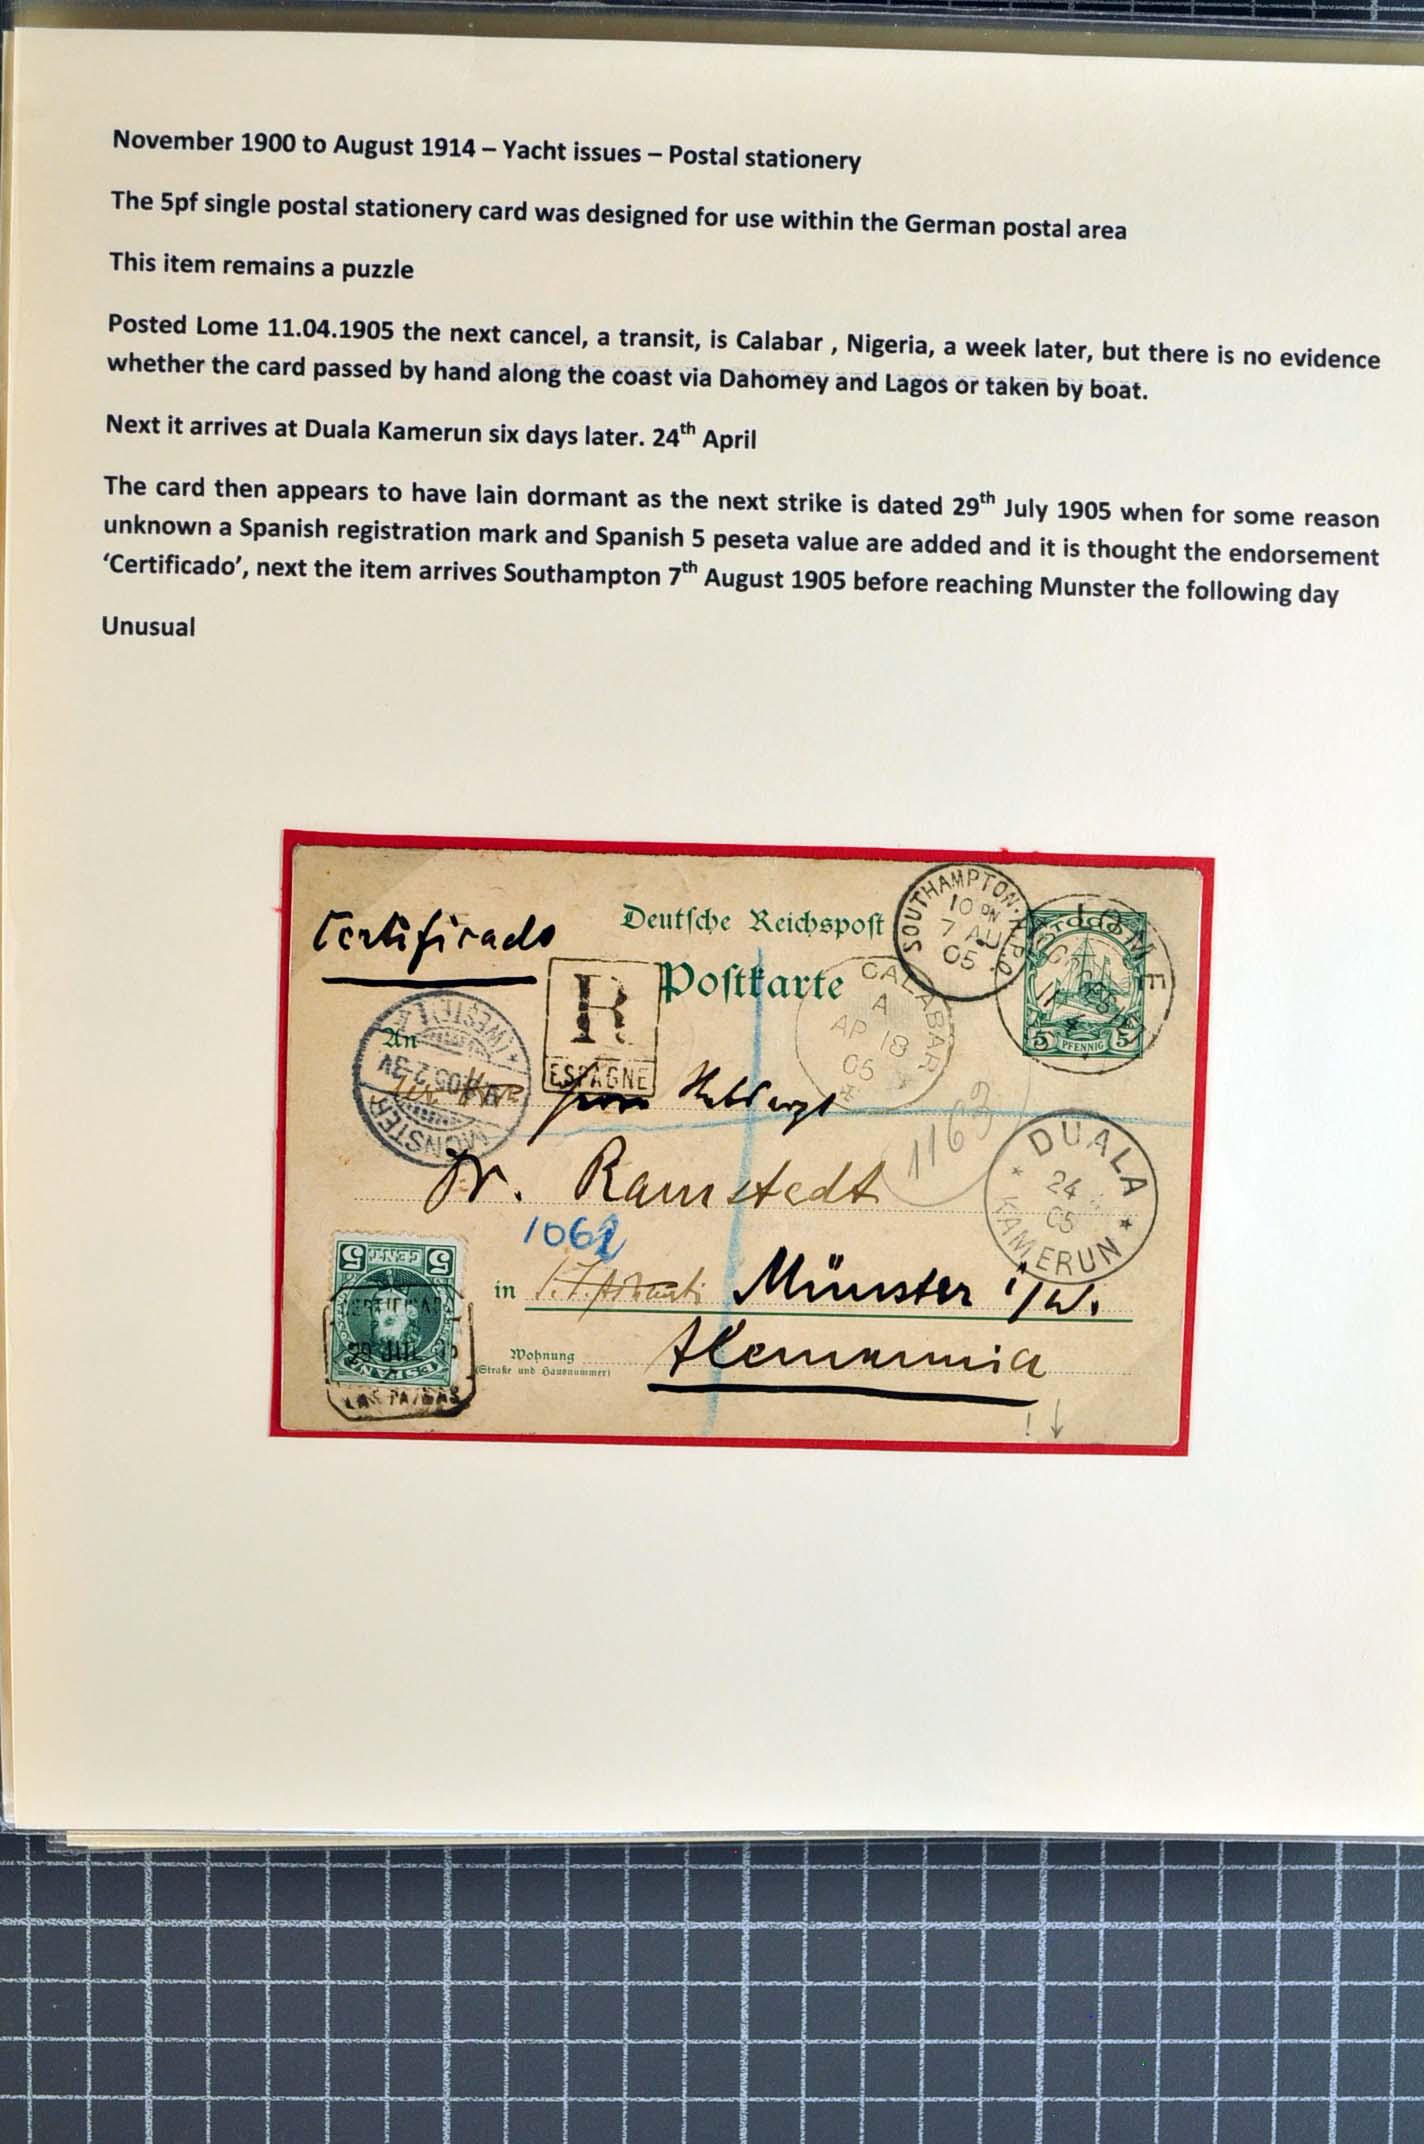 November 1900 to August 1914 – Yacht issues – Postal stationery
The 5pf single postal stationery card was designed for use within the German postal area
This item remains a puzzle
Posted Lome 11.04.1905 the next cancel, a transit, is Calabar , Nigeria, a week later, but there is no evidence
whether the card passed by hand along the coast via Dahomey and Lagos or taken by boat.
Next it arrives at Duala Kamerun six days later. 24th April
The card then appears to have lain dormant as the next strike is dated 29th July 1905 when for some reason
unknown a Spanish registration mark and Spanish 5 peseta value are added and it is thought the endorsement
‘Certificado’, next the item arrives Southampton 7th August 1905 before reaching Munster the following day
Unusual
Certificado
Deutsche Reichspost
Postkarte
SOUTHAMPTON
10 PM
7 AU
05
LOME
TOGO
5 PFENNIG 5
R
ESPAGNE
CALABAR
A
AP 18
05
An
MÜNSTER (WESTF)
1163
DUALA
24
05
KAMERUN
Dr. Ramstedt
1062
in Münster i/W.
Wohnung
(Straße und Hausnummer)
Alemannia
5 CENTS 5
29 JUL
LAS PALMAS